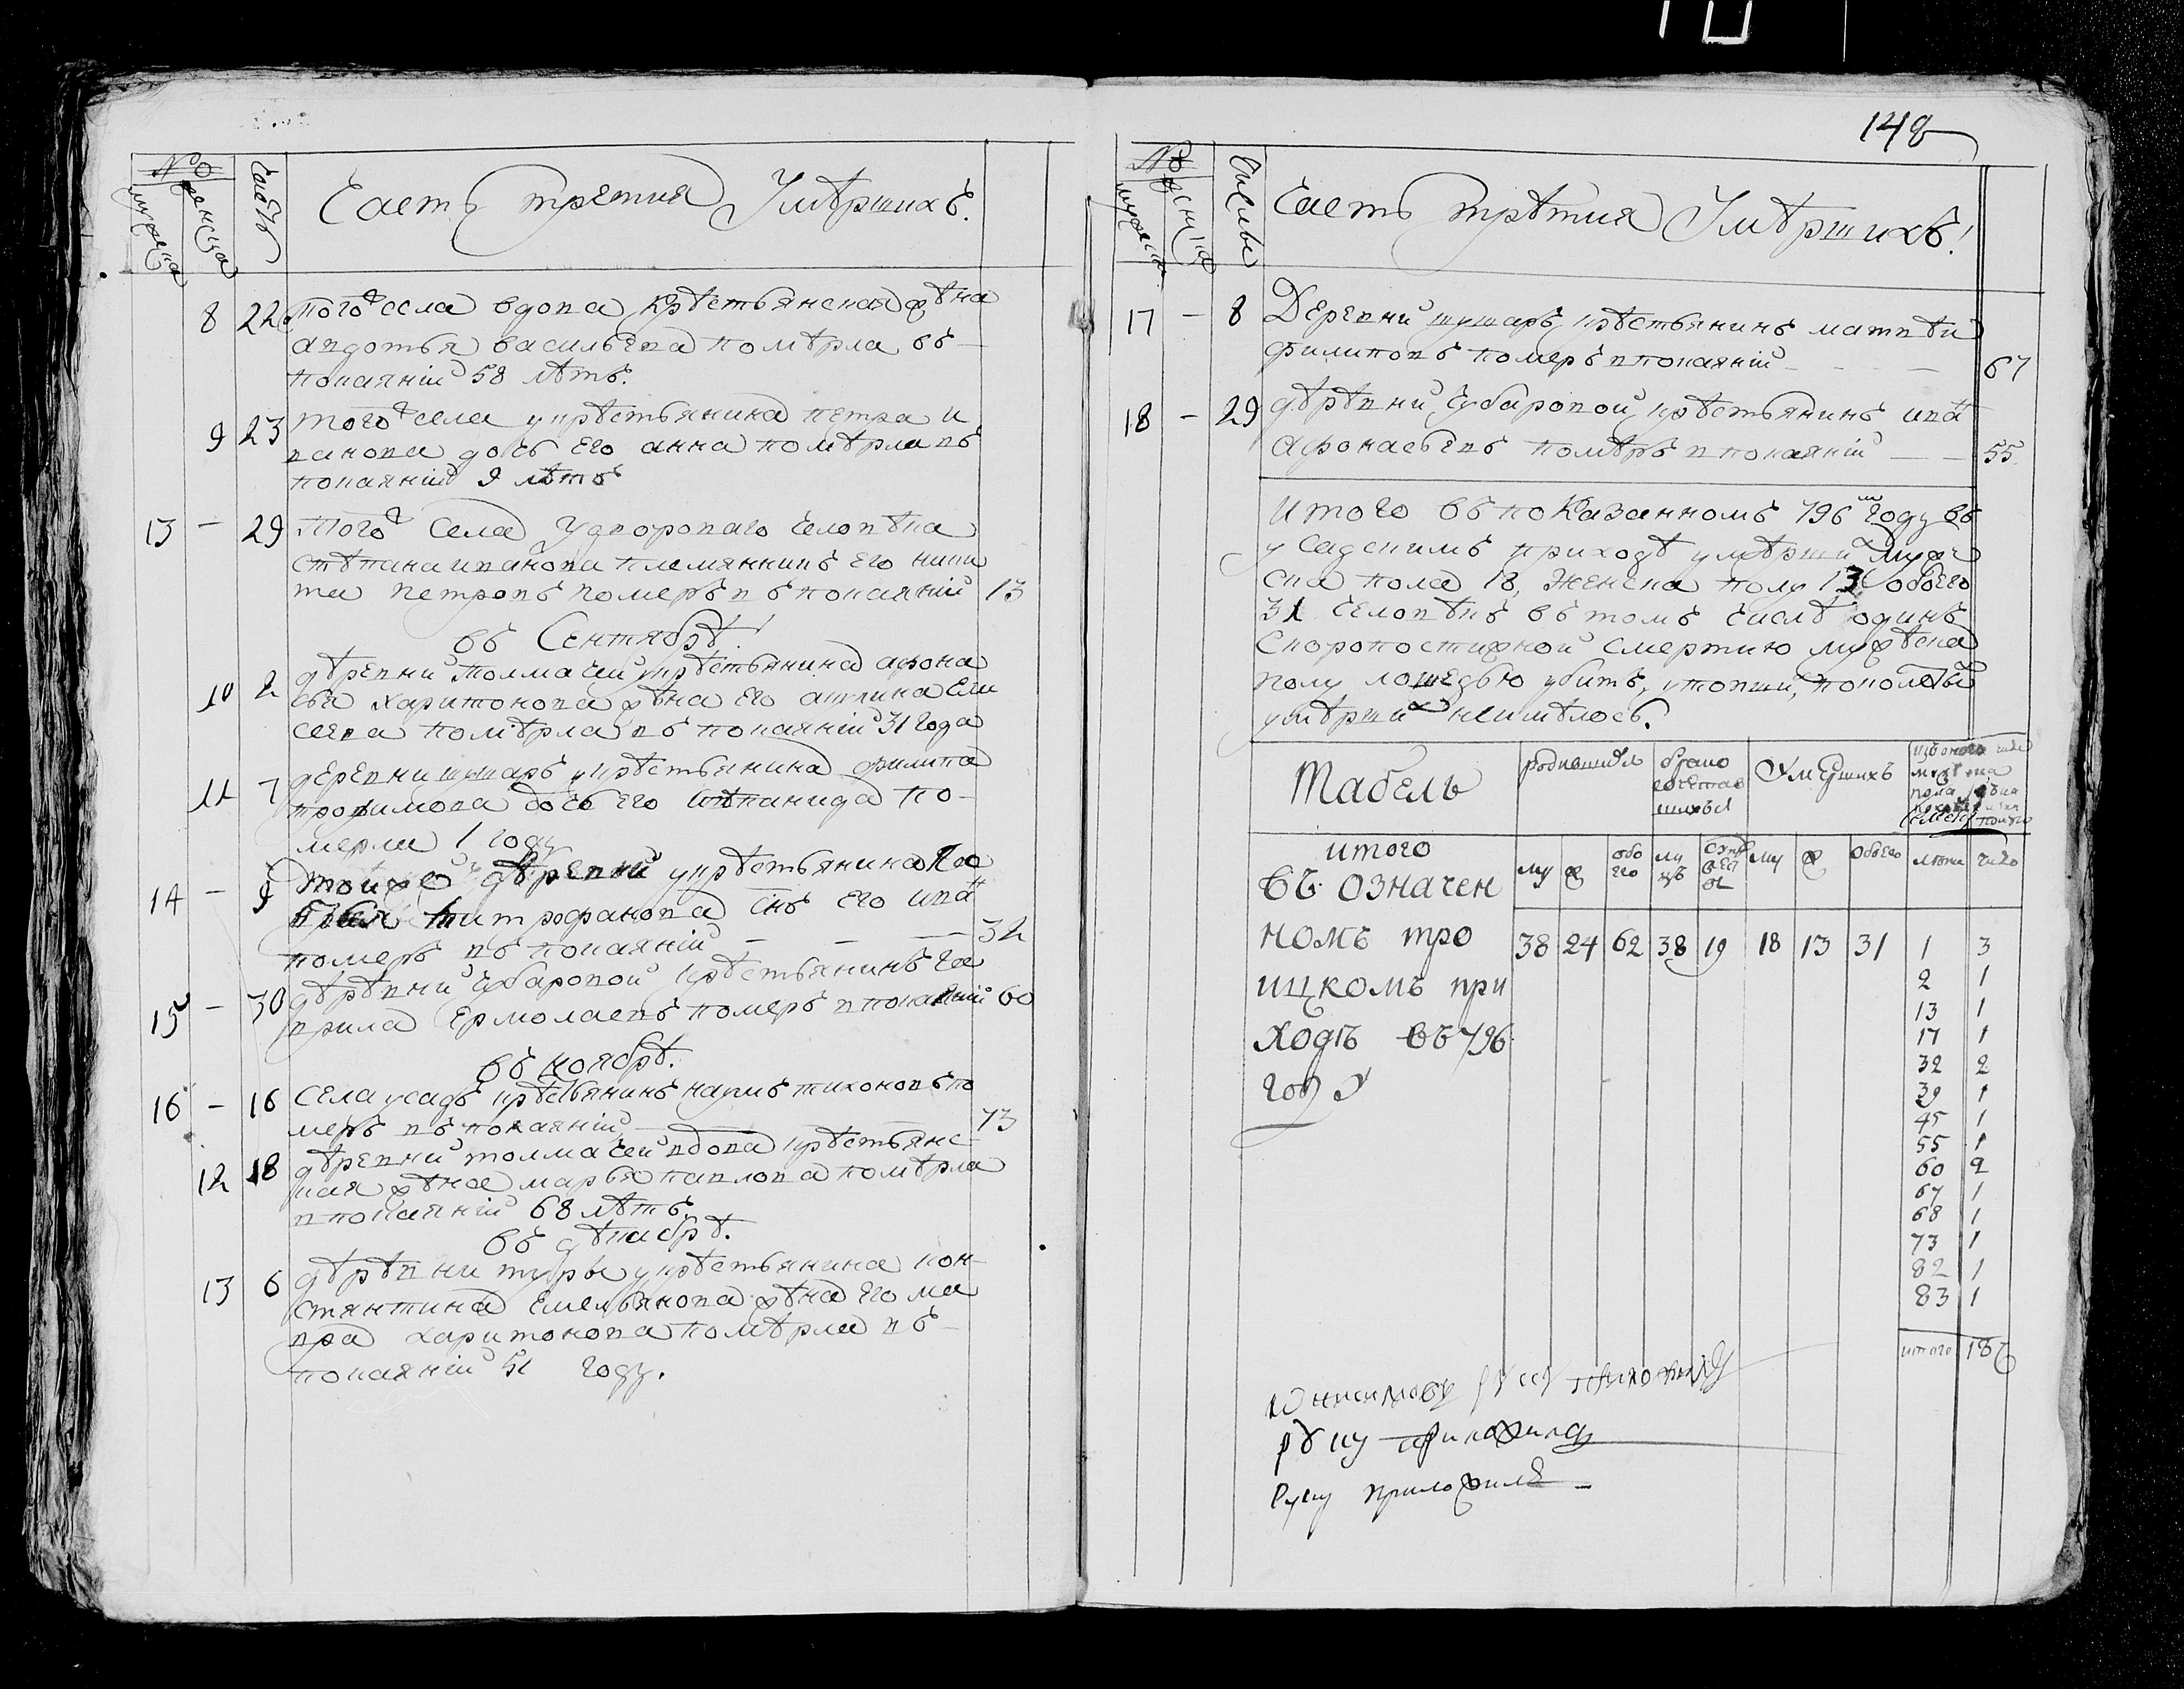 №
мужеска
женска
Часть третия Умѣршихъ.
8 22 того ж села вдова крѣстьянская жѣна
авдотья васильева помѣрла въ
покаяніи 58 лѣтъ.
9 23 того ж села у крѣстьянина петра и
ванова дочь его анна помѣрла въ
покаяніи 9 лѣтъ
13 – 29 того ж села у дворового человѣка
стѣпана иванова племянникъ его ники
та петровъ померъ въ покаяніи 13
въ Сентябрѣ
10 2 дѣревни толмачей у крѣстьянина афона
сья харитонова жѣна его акулина ели
сеева помѣрла въ покаяніи 31 года
11 7 деревни шушаръ у крѣстьянина филипа
трофимова дочь его стѣпанида по-
мерла 1 году
14 – 9 тоиже дѣревни у крѣстьянина
митрофанова снъ его иванъ
померъ въ покаяніи – – – 32
15 – 30 дѣрѣвни чубаровой крѣстьянинъ га
врила Ермолаевъ померъ в покаяніи 60
въ ноябрѣ.
16 – 16 Села усадъ крѣстьянинъ наумъ тихоновъ по
меръ въ покаяніи 73
12 18 дѣревни толмачей вдова крѣстьянс
кая жѣна марья павлова помѣрла
в покаяніи 68 лѣтъ.
въ дѣкабрѣ.
13 6 дѣрѣвни туры у крѣстьянина кон
стянтина Емельянова жѣна его ма
вра харитонова помѣрла въ
покаяніи 51 году.
148
№
мужеска
женска
Часть трѣтия Умѣршихъ
17 – 8 Деревни шушаръ крѣстьянинъ матвѣй
филиповъ померъ в покаяніи – – – 67
18 – 29 дѣрѣвни чубаровой крѣстьянинъ иванъ
Афонасьевъ помѣръ в покаяніи – – 55
Итого въ показанномъ 796м году въ
усадскимъ приходѣ умѣрших мужс
ска пола 18, женска полу 13 обоего
31 человѣкъ въ томъ числѣ одинъ
Скоропостижной смертию мужѣска
полу лошедью убитъ,
умѣрших неимѣлось.
Табель
родившихся
брако
сочетав
шихъся
Умершихъ
итого
въ означен
номъ тро
ицкомъ при
ходѣ въ 796
году
му ж обо его му ж обоего лета число
38 24 62 38 19 18 13 31 1 3
2 1
13 1
17 1
32 2
39 1
45 1
55 1
60 2
67 1
68 1
73 1
82 1
83 1
итого 18
руку приложилъ
руку приложилъ